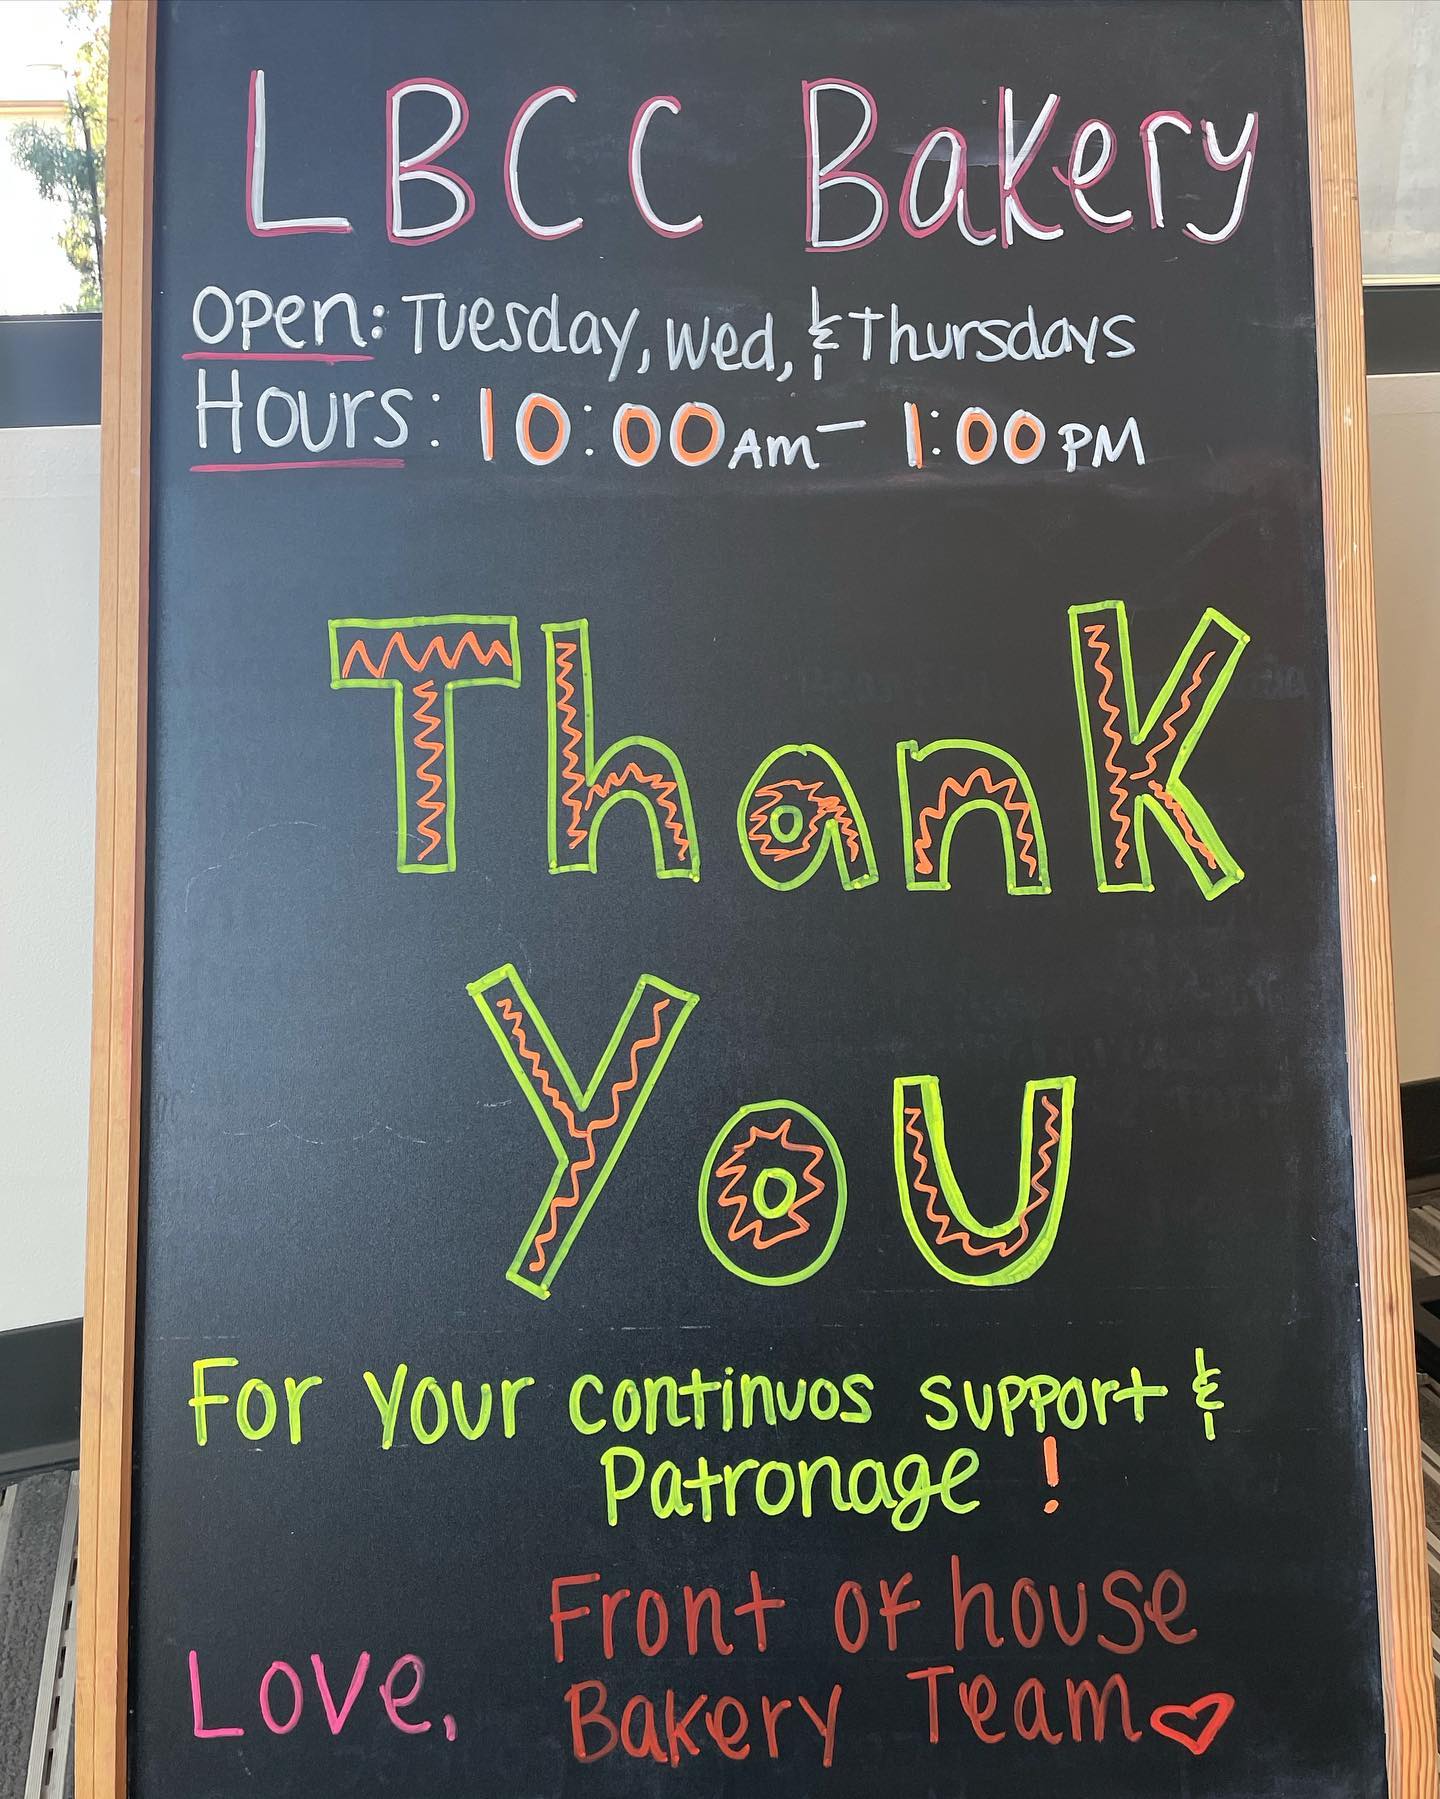 LBCC Bakery
Open: Tuesday, Wed, & Thursdays
Hours: 10:00 Am - 1:00 PM
Thank
You
For Your continuos support &
Patronage !
Front of house
Love, Bakery Team